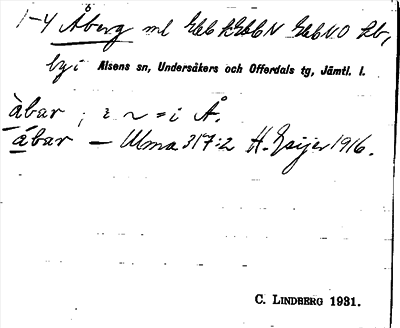 1-4 Åberg ml GebfGebN GebNO Lb,
by i Alsens sn, Undersåkers och Offerdals tg, Jämtl. l.
àbar, i ~ = i Å.
ábar — Ulma 317:2 H. Geijer 1916.
C. LINDBERG 1931.